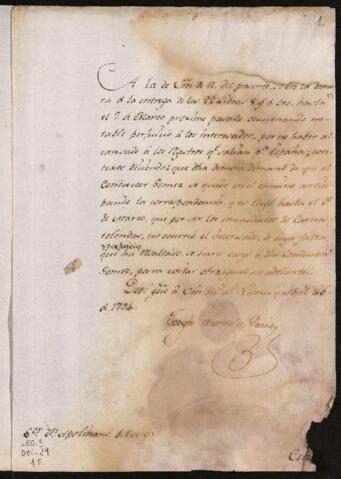 A la de Vm. de 11 del presente, sobre la demo
ra de la entrega de las 22 libras de oro, hasta
el 7 de Marzo proximo pasado ocasionando no
table perjuicio à los interesados, por no haber al
canzado à los Registros qe. salian pa. España; con
texto diciendo que dha demora dimanó de que el
Conductor Gomez se quedó en el camino antici
pando la correspondencia, y no llegó hasta el
de Marzo, que por ser los inmediatos de Carnes
tolendas, no ocurrió el interesado, de cuya falta
y perjuicio
que ha resultado, se hara cargo à dho Conductor
Gomez, para evitar otro igual en adelante.
Dios gue. à Vm. ms. as. Abril 26
de 1794.
Joseph Antonio de
Sor. Dn. Apolinario
LEG. 3
DOC. 29
1 F.